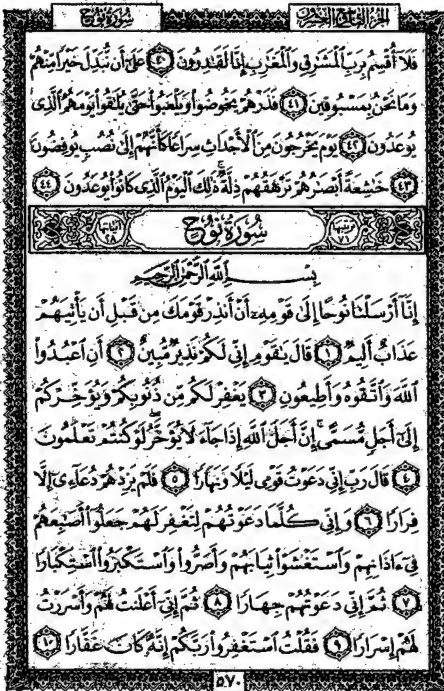 سُورَةُ نُوحٍ
الجزء التاسع والعشرون
فَلَآ أُقۡسِمُ بِرَبِّ ٱلۡمَشَٰرِقِ وَٱلۡمَغَٰرِبِ إِنَّا لَقَٰدِرُونَ ٤٠ عَلَىٰٓ أَن نُّبَدِّلَ خَيۡرٗا مِّنۡهُمۡ
وَمَا نَحۡنُ بِمَسۡبُوقِينَ ٤١ فَذَرۡهُمۡ يَخُوضُواْ وَيَلۡعَبُواْ حَتَّىٰ يُلَٰقُواْ يَوۡمَهُمُ ٱلَّذِي
يُوعَدُونَ ٤٢ يَوۡمَ يَخۡرُجُونَ مِنَ ٱلۡأَجۡدَاثِ سِرَاعٗا كَأَنَّهُمۡ إِلَىٰ نُصُبٖ يُوفِضُونَ
٤٣ خَٰشِعَةً أَبۡصَٰرُهُمۡ تَرۡهَقُهُمۡ ذِلَّةٞۚ ذَٰلِكَ ٱلۡيَوۡمُ ٱلَّذِي كَانُواْ يُوعَدُونَ ٤٤
ترتيبها ٧١ سُورَةُ نُوحٍ آياتها ٢٨
بِسۡمِ ٱللَّهِ ٱلرَّحۡمَٰنِ ٱلرَّحِيمِ
إِنَّآ أَرۡسَلۡنَا نُوحًا إِلَىٰ قَوۡمِهِۦٓ أَنۡ أَنذِرۡ قَوۡمَكَ مِن قَبۡلِ أَن يَأۡتِيَهُمۡ
عَذَابٌ أَلِيمٞ ١ قَالَ يَٰقَوۡمِ إِنِّي لَكُمۡ نَذِيرٞ مُّبِينٌ ٢ أَنِ ٱعۡبُدُواْ
ٱللَّهَ وَٱتَّقُوهُ وَأَطِيعُونِ ٣ يَغۡفِرۡ لَكُم مِّن ذُنُوبِكُمۡ وَيُؤَخِّرۡكُمۡ
إِلَىٰٓ أَجَلٖ مُّسَمًّىۚ إِنَّ أَجَلَ ٱللَّهِ إِذَا جَآءَ لَا يُؤَخَّرُۚ لَوۡ كُنتُمۡ تَعۡلَمُونَ
٤ قَالَ رَبِّ إِنِّي دَعَوۡتُ قَوۡمِي لَيۡلٗا وَنَهَارٗا ٥ فَلَمۡ يَزِدۡهُمۡ دُعَآءِيٓ إِلَّا
فِرَارٗا ٦ وَإِنِّي كُلَّمَا دَعَوۡتُهُمۡ لِتَغۡفِرَ لَهُمۡ جَعَلُوٓاْ أَصَٰبِعَهُمۡ
فِيٓ ءَاذَانِهِمۡ وَٱسۡتَغۡشَوۡاْ ثِيَابَهُمۡ وَأَصَرُّواْ وَٱسۡتَكۡبَرُواْ ٱسۡتِكۡبَارٗا
٧ ثُمَّ إِنِّي دَعَوۡتُهُمۡ جِهَارٗا ٨ ثُمَّ إِنِّيٓ أَعۡلَنتُ لَهُمۡ وَأَسۡرَرۡتُ
لَهُمۡ إِسۡرَارٗا ٩ فَقُلۡتُ ٱسۡتَغۡفِرُواْ رَبَّكُمۡ إِنَّهُۥ كَانَ غَفَّارٗا ١٠
٥٧٠